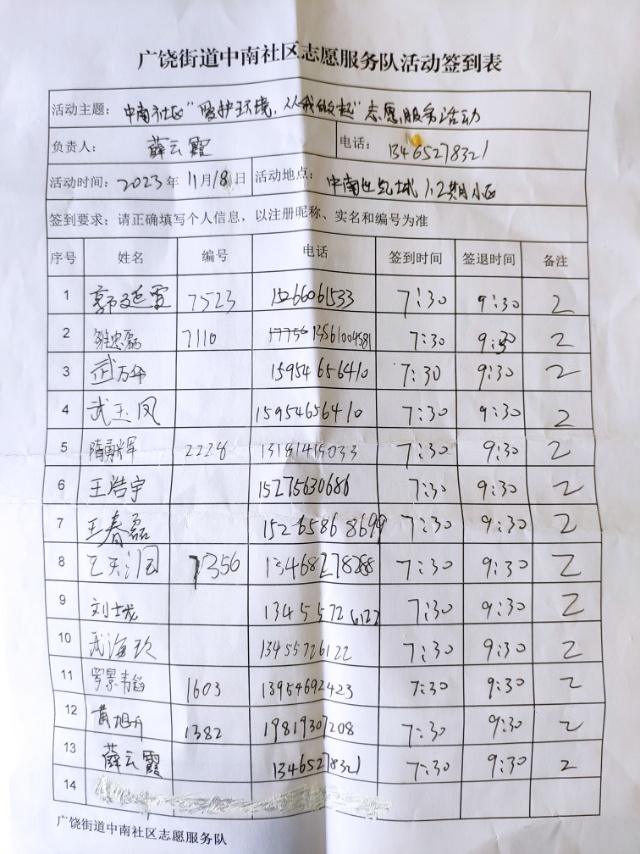 广饶街道中南社区志愿服务队活动签到表
活动主题: 中南社区"爱护环境,从我做起"志愿服务活动
负责人: 薛云霞 电话: 13465278321
活动时间: 2023年11月18日 活动地点: 中南世纪城1.2期小区
签到要求: 请正确填写个人信息，以注册昵称、实名和编号为准
序号 姓名 编号 电话 签到时间 签退时间 备注
1 7523 15266061533 7:30 9:30 2
2 7110 13561004581 7:30 9:30 2
3 武万华 15954656410 7:30 9:30 2
4 武玉凤 15954656410 7:30 9:30 2
5 隋 辉 2228 7:30 9:30 2
6 王浩宇 15275630686 7:30 9:30 2
7 王春磊 15265868699 7:30 9:30 2
8 7356 13468278288 7:30 9:30 2
9 刘士龙 13455726122 7:30 9:30 2
10 武海玖 13455726122 7:30 9:30 2
11 1603 13954692423 7:30 9:30 2
12 黄旭升 1382 19819307208 7:30 9:30 2
13 薛云霞 13465278321 7:30 9:30 2
14
广饶街道中南社区志愿服务队